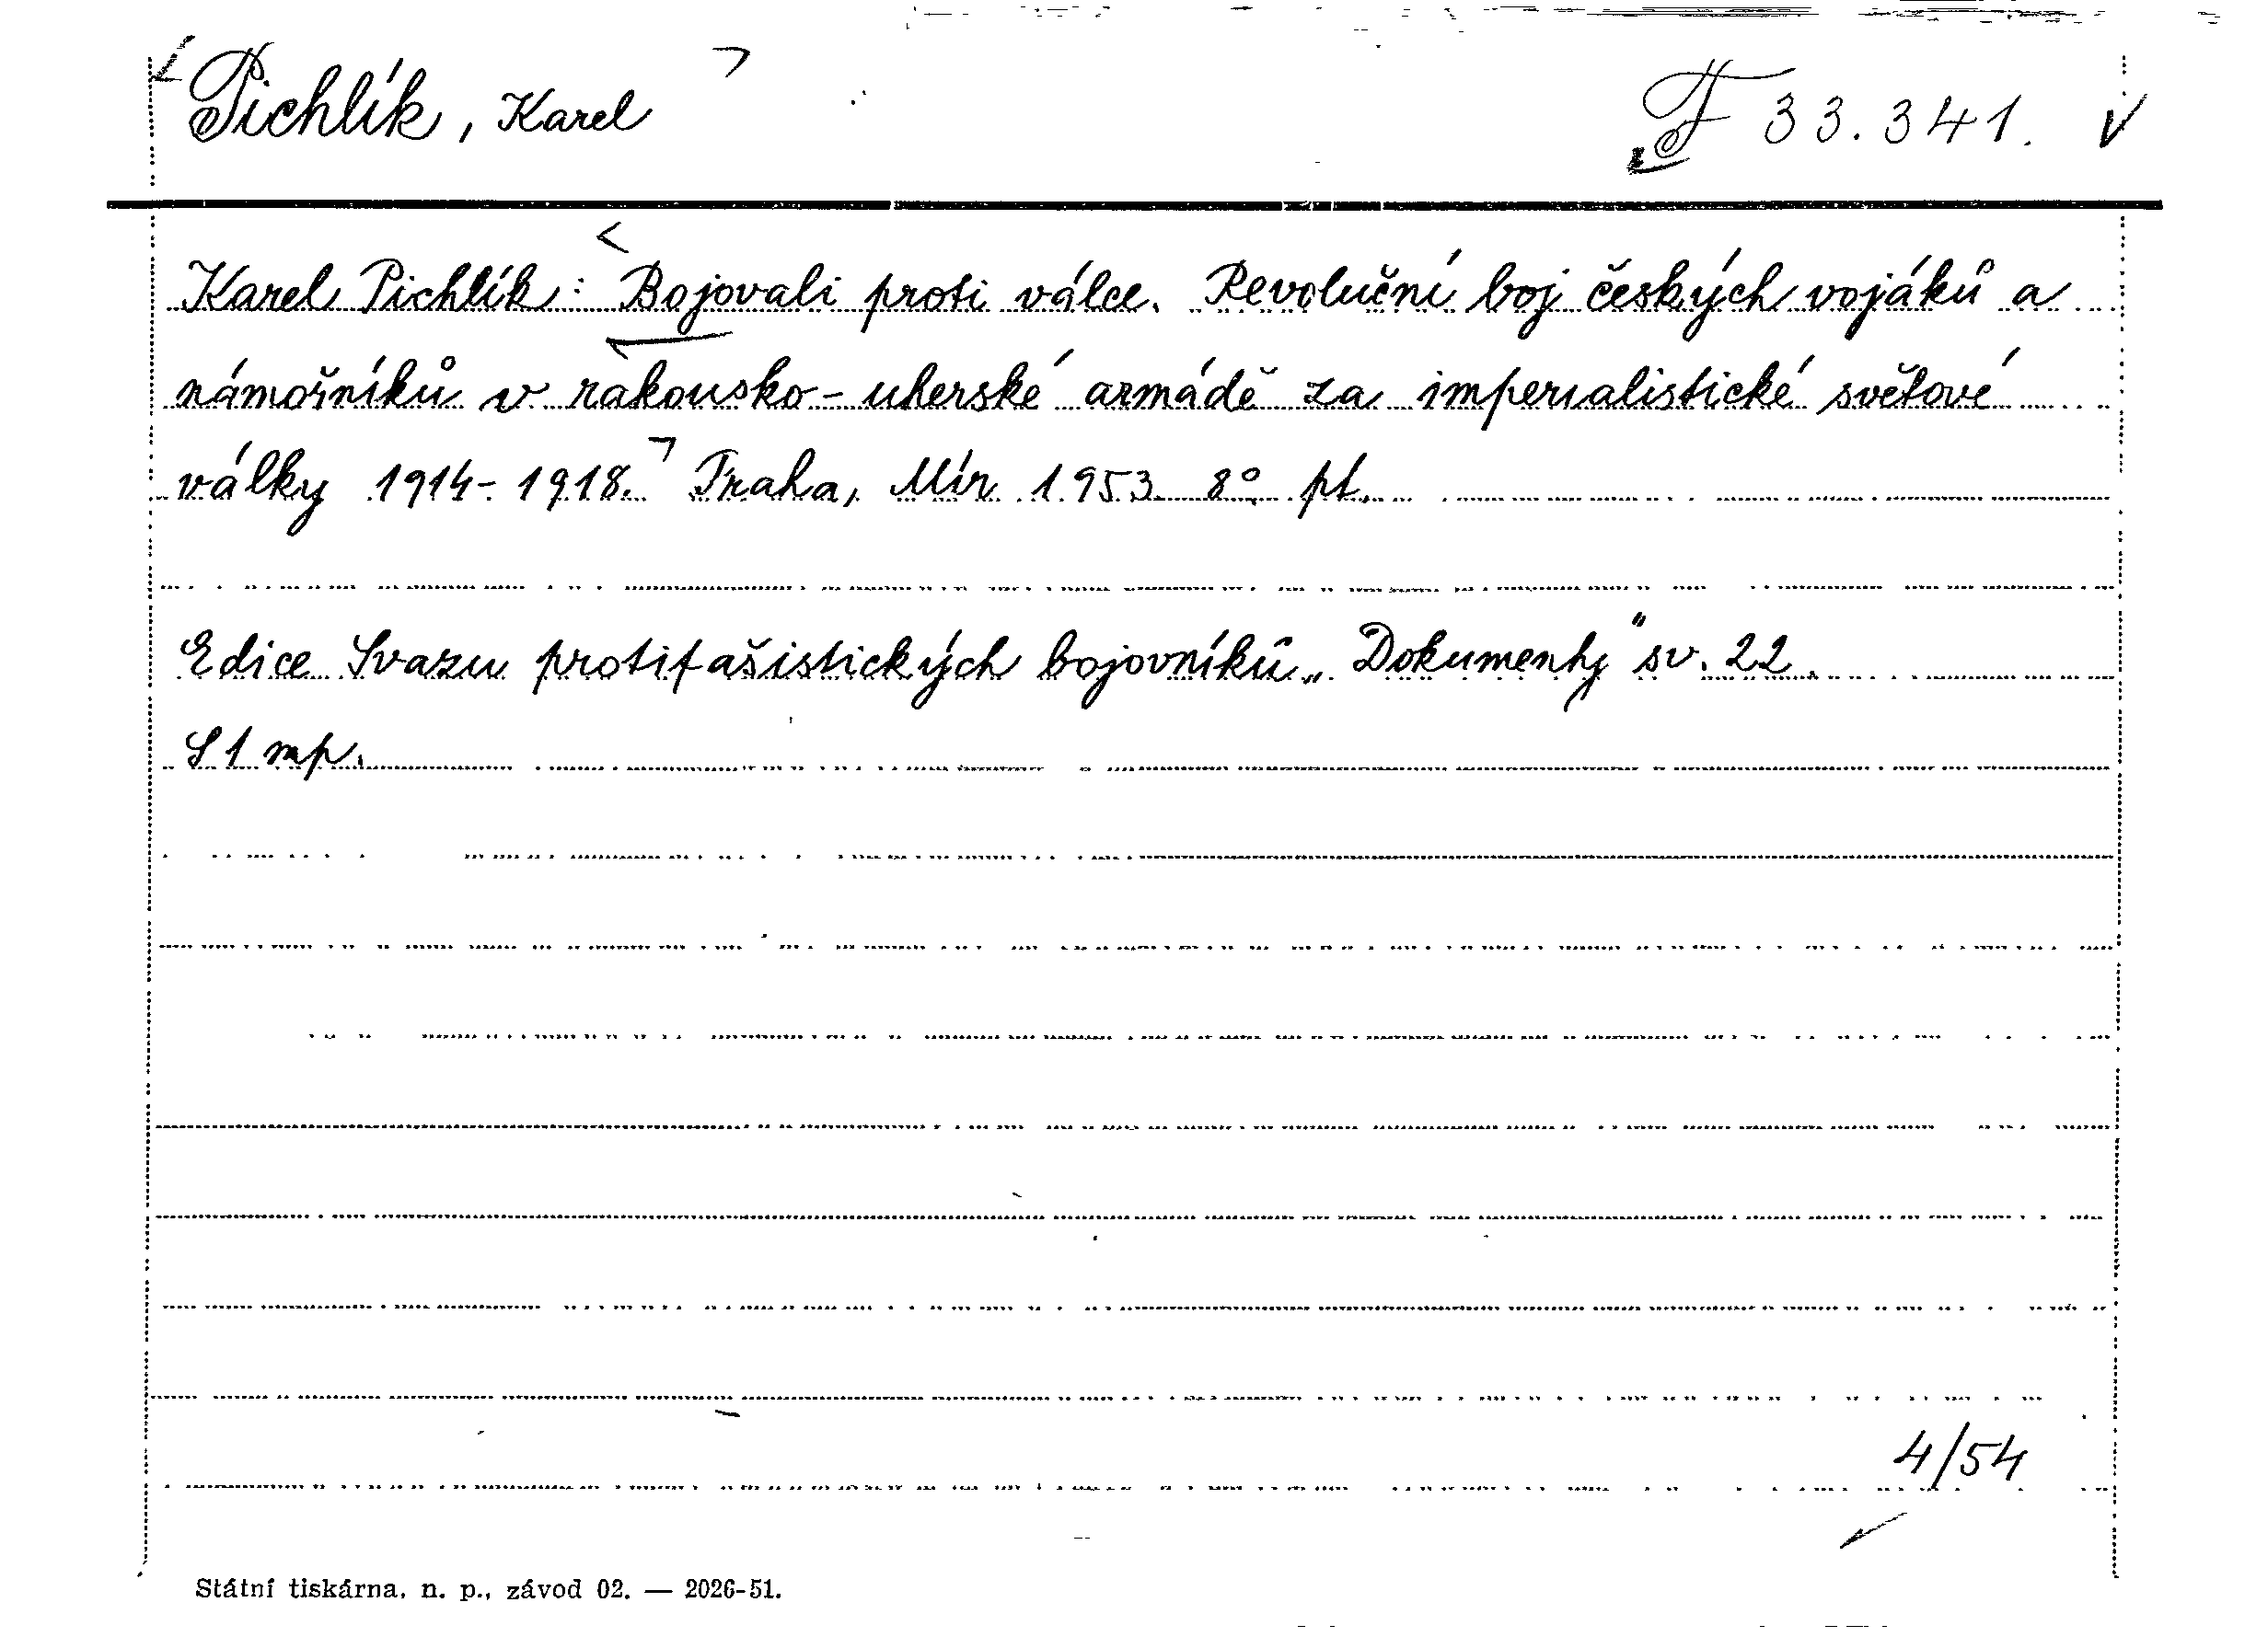 Pichlík, Karel
F 33.341.
Karel Pichlík: Bojovali proti válce. Revoluční boj českých vojáků a
námořníků v rakousko-uherské armádě za imperialistické světové
války 1914-1918. Praha, Mír 1953. 8° pt.
Edice Svazu protifašistických bojovníků „Dokumenty" sv. 22.
S 1 mp.
4/54
Státní tiskárna, n. p., závod 02. — 2026-51.